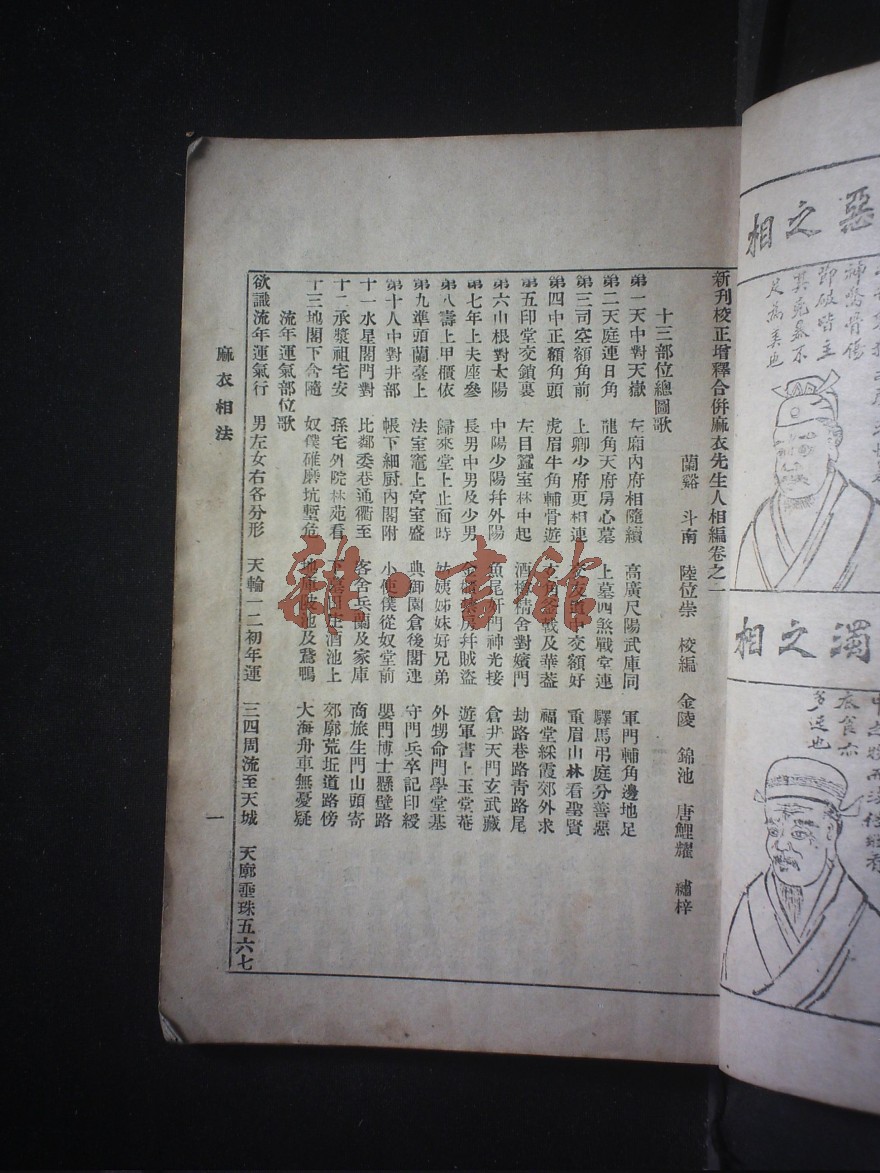 惡之相
神
骨傷
即破皆主
其兇暴不
足為美也
濁之相
衣食亦
多迍也
新刊校正增釋合併麻衣先生人相編卷之一
蘭谿 斗南 陸位崇 校編 金陵 錦池 唐鯉耀 繡梓
十三部位總圖歌
第一天中對天嶽 左廂內府相隨續 高廣尺陽武庫同 軍門輔角邊地足
第二天庭連日角 龍角天府房心墓 上墓四煞戰堂連 驛馬弔庭分善惡
第三司空額角前 上卿少府更相連 交友道中交額好 重眉山林看聖賢
第四中正額角頭 虎眉牛角輔骨遊 角斧戟及華蓋 福堂綵霞郊外求
第五印堂交鎖裏 左目蠶室林中起 酒樽精舍對嬪門 劫路巷路靑路尾
第六山根對太陽 中陽少陽幷外陽 魚尾奸門神光接 倉井天門玄武藏
第七年上夫座參 長男中男及少男 房幷賊盜 遊軍書上玉堂菴
第八壽上甲匱依 歸來堂上止面時 姑姨姊妹好兄弟 外甥命門學堂基
第九準頭蘭臺上 法室竈上宮室盛 典御園倉後閣連 守門兵卒記印綬
第十人中對井部 帳下細厨內閣附 小使僕從奴堂前 嬰門博士懸壁路
十一水星閣門對 比鄰委巷通衢至 客舍兵蘭及家庫 商旅生門山頭寄
十二承漿祖宅安 孫宅外院林苑看 下墓田庄酒池上 郊廓荒坵道路傍
十三地閣下舍隨 奴僕碓磨坑塹危 地庫陂池及鵞鴨 大海舟車無憂疑
流年運氣部位歌
欲識流年運氣行 男左女右各分形 天輪一二初年運 三四周流至天城 天廓垂珠五六七
麻衣相法
一
雜·書館